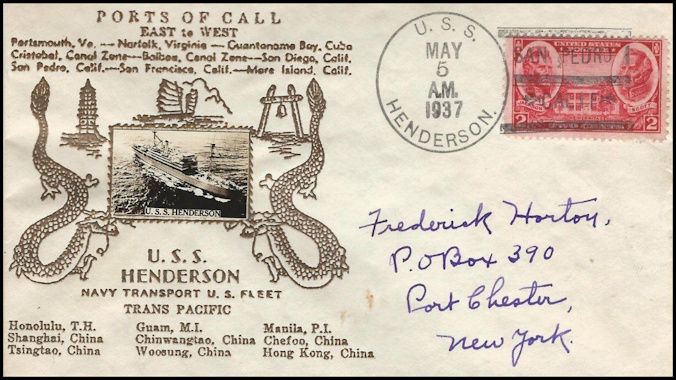 PORTS OF CALL
EAST to WEST
Portsmouth, Va. -- Norfolk, Virginia -- Guantanamo Bay, Cuba
Cristobal, Canal Zone--Balboa, Canal Zone--San Diego, Calif.
San Pedro, Calif.--San Francisco, Calif.--Mare Island, Calif.
U.S.S. HENDERSON
U. S. S.
HENDERSON
NAVY TRANSPORT U. S. FLEET
TRANS PACIFIC
Honolulu, T.H. Guam, M.I. Manila, P.I.
Shanghai, China Chinwangtao, China Chefoo, China
Tsingtao, China Woosung, China Hong Kong, China
U. S. S.
MAY
5
A.M.
1937
HENDERSON.
UNITED STATES
POSTAGE
SAN PEDRO
CALIF.
2 2
Frederick Horton,
P.O Box 390
Port Chester,
New York.